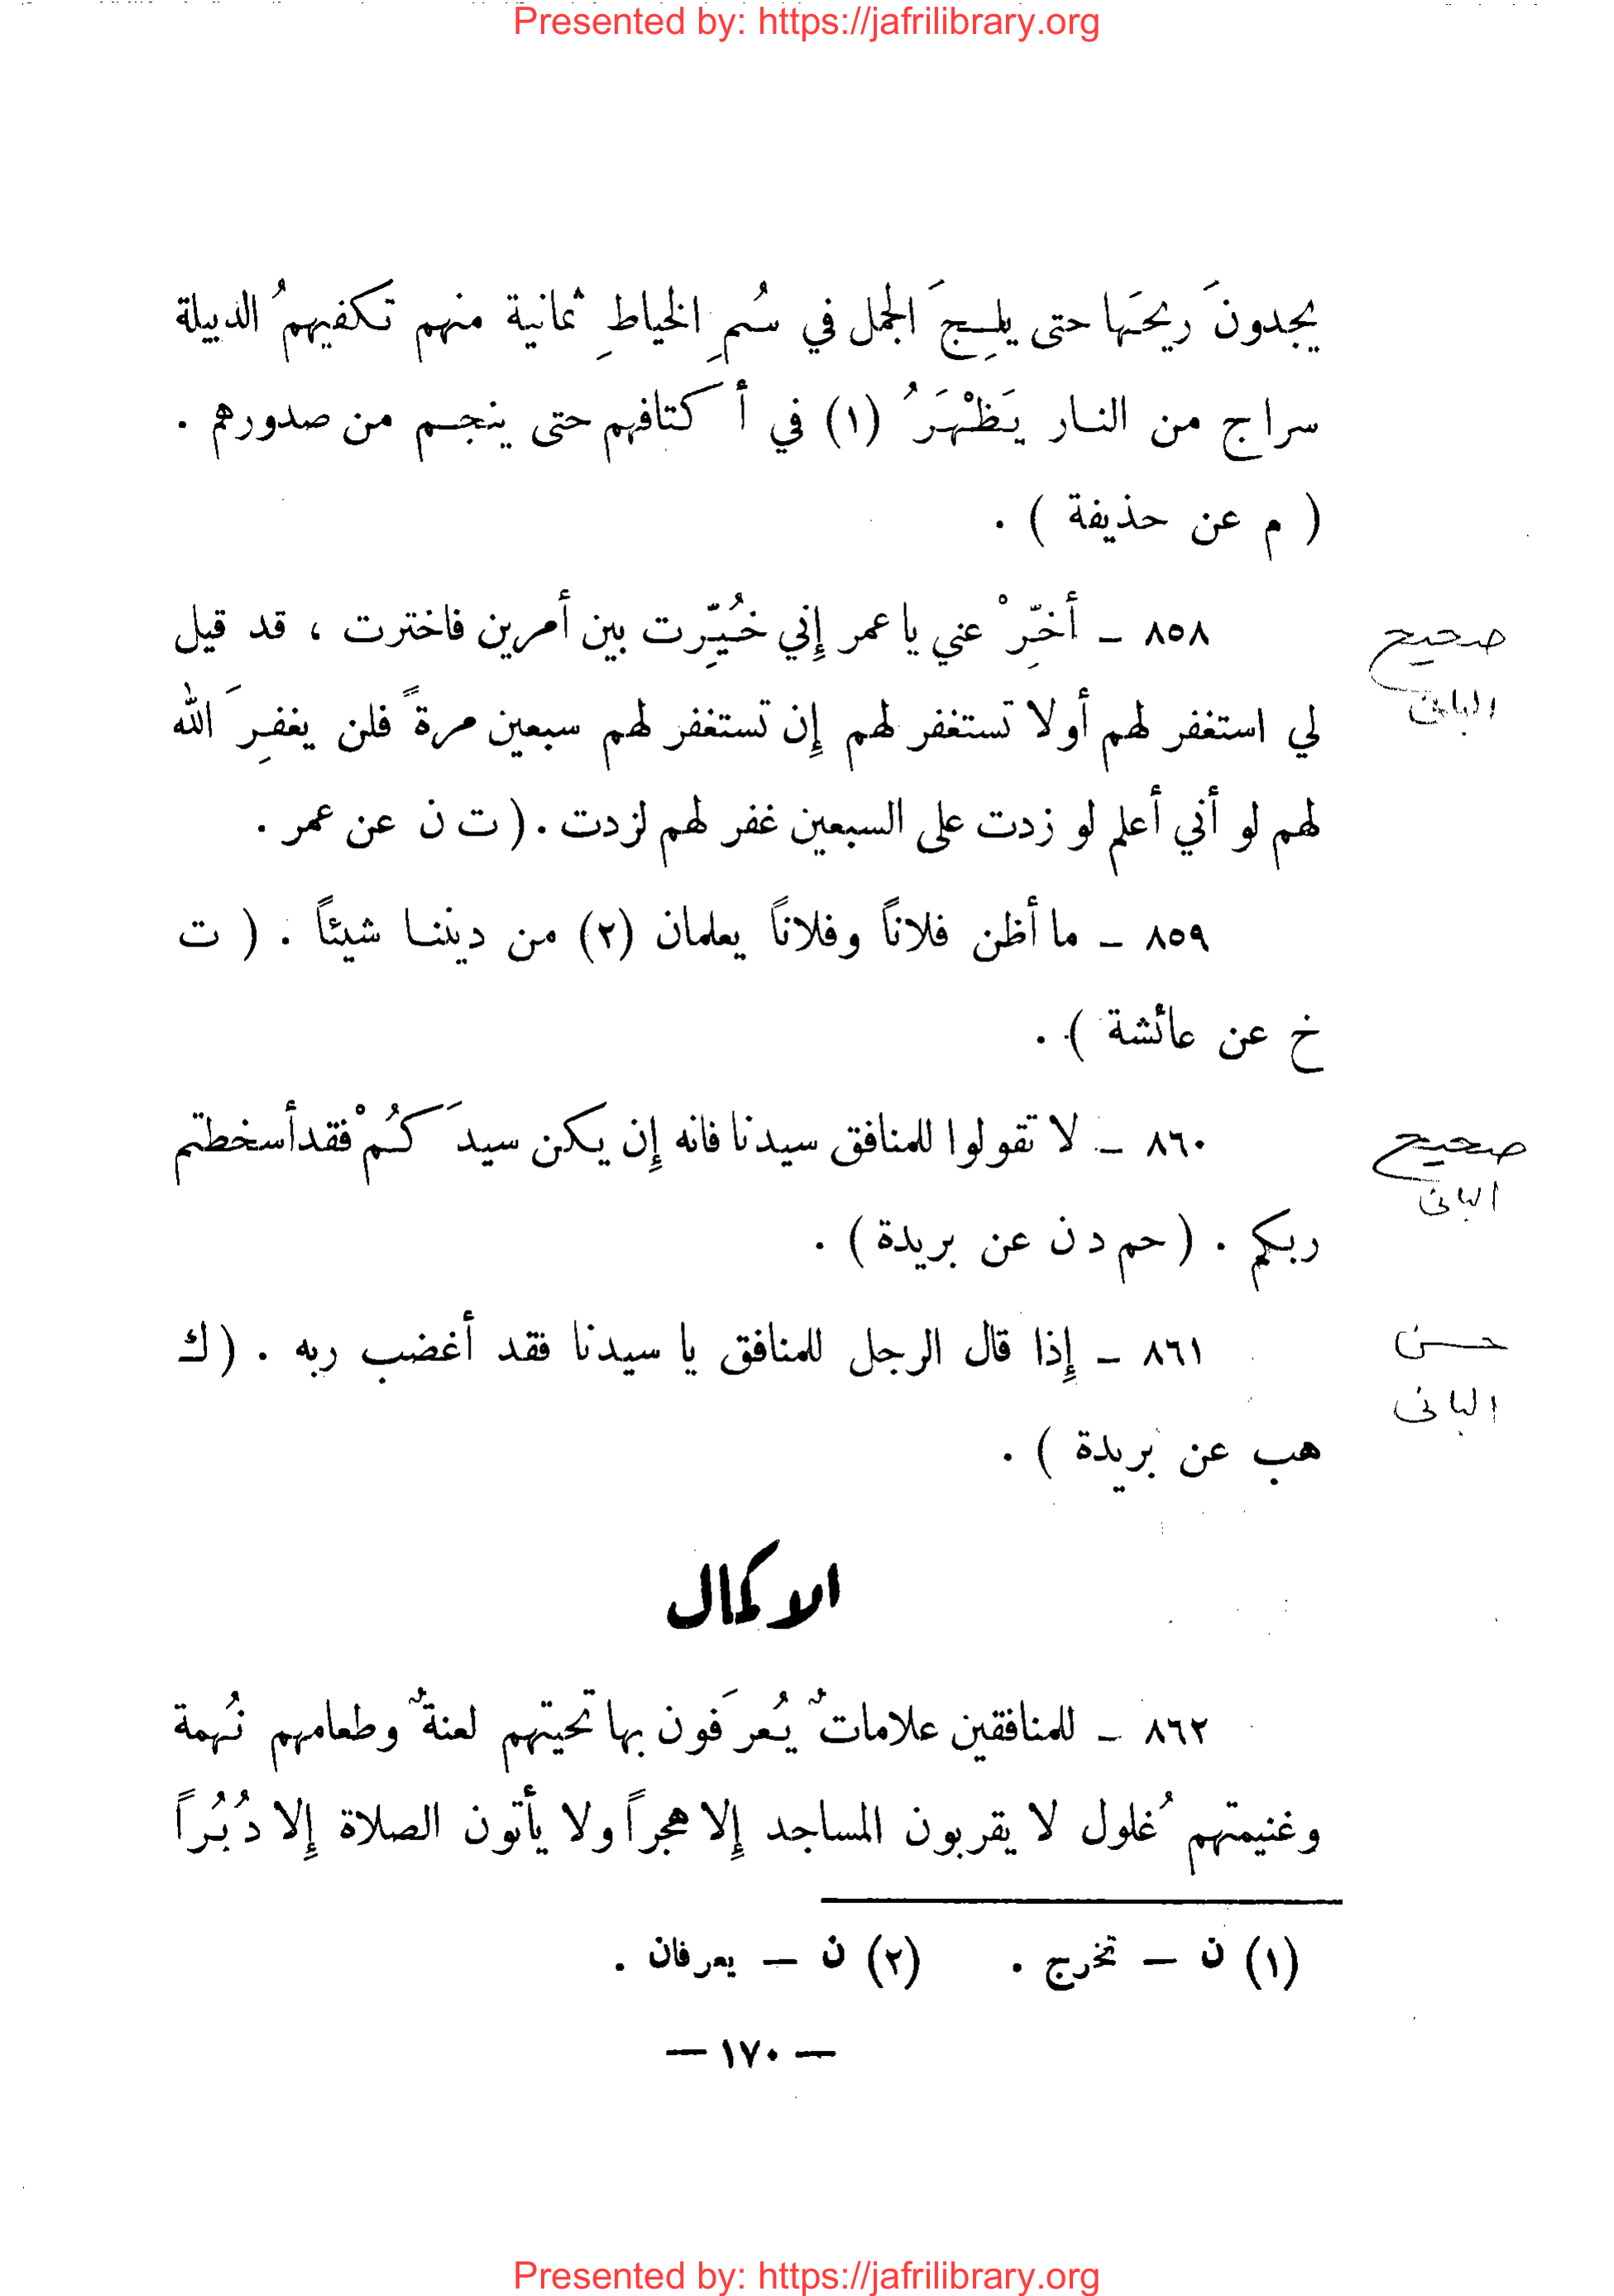 Presented by: https://jafrilibrary.org
يجدونَ ريحَها حتى يلِجَ الجمل في سُمِ الخياطِ ثمانية منهم تكفيهمُ الدبيلة
سراج من النار يَظْهَرُ (١) في أكتافهم حتى ينجم من صدورهم .
( م عن حذيفة ) .
٨٥٨ ـ أخّرْ عني يا عمر إِني خُيّرت بين أمرين فاخترت ، قد قيل
صحيح
البانى
لي استغفر لهم أولا تستغفر لهم إِن تستغفر لهم سبعين مرةً فلن يغفِرَ الله
لهم لو أني أعلم لو زدت على السبعين غفر لهم لزدت . ( ت ن عن عمر .
٨٥٩ ـ ما أظن فلاناً وفلاناً يعلمان (٢) من ديننا شيئاً . ( ت
خ عن عائشة ) .
٨٦٠ ـ لا تقولوا للمنافق سيدنا فانه إِن يكن سيدَكُمْ فقد أسخطتم
صحيح
البانى
ربكم . ( حم د ن عن بريدة ) .
٨٦١ ـ إِذا قال الرجل للمنافق يا سيدنا فقد أغضب ربه . ( ك
حسن
البانى
هب عن بريدة ) .
الاكمال
٨٦٢ ـ للمنافقين علاماتٌ يُعرَفون بها تحيتهم لعنةٌ وطعامهم نُهمة
وغنيمتهم غُلول لا يقربون المساجد إِلا هجراً ولا يأتون الصلاة إِلا دُبُراً
(١) ن — تخرج . (٢) ن — يعرفان .
— ١٧٠ —
Presented by: https://jafrilibrary.org